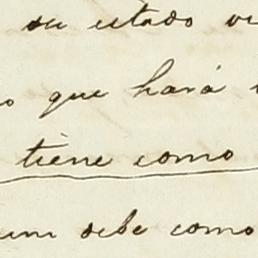 su estado
que hará
tiene como
debe como